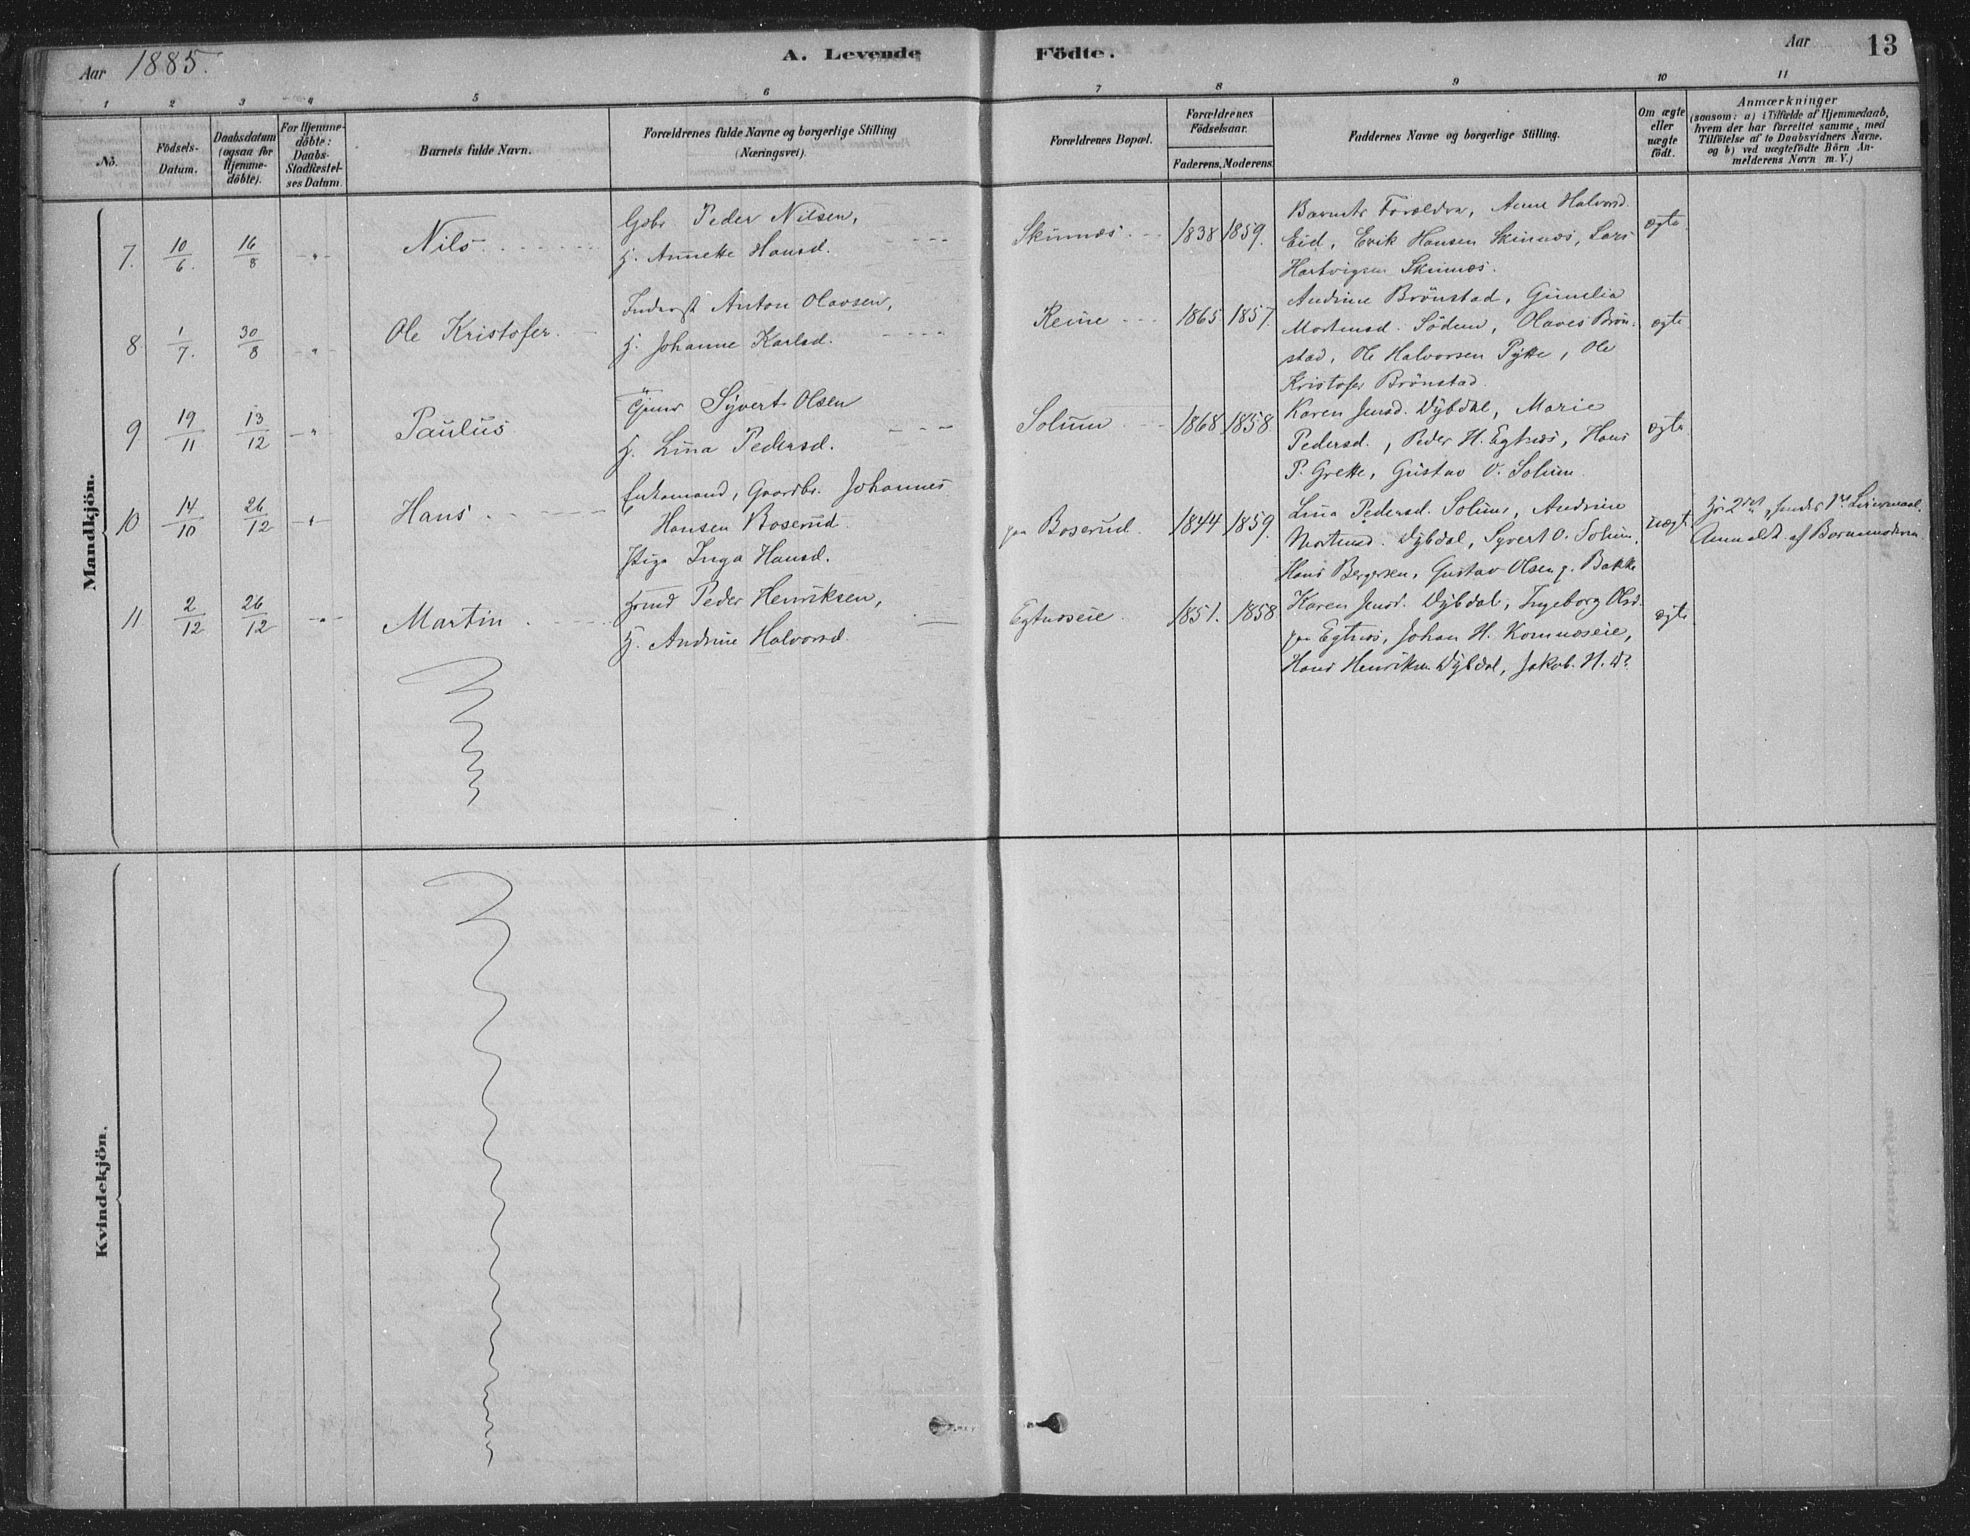 Aar 1885. A. Levende Födte. Aar 13
1 2 3 4 5 6 7 8 9 10 11
No.
Födsels-
Datum.
Daabsdatum
(ogsaa for
Hjemme-
döbte).
For Hjemme-
döbte:
Daabs-
Stadfæstel-
ses Datum.
Barnets fulde Navn.
Forældrenes fulde Navne og borgerlige Stilling
(Næringsvei).
Forældrenes Bopæl.
Forældrenes
Födselsaar.
Faderens. Moderens.
Faddernes Navne og borgerlige Stilling.
Om ægte
eller
uægte
födt.
Anmærkninger
(saasom: a) i Tilfælde af Hjemmedaab,
hvem der har forrettet samme, med
Tilföielse af to Daabsvidners Navne.
og b) ved uægtefödte Börn An-
melderens Navn m. V.)
Mandkjön.
7. 10/6. 16/8 -"- Nils.
Gbr. Peder Nilsen,
H. Annette Hansd.
Skinnæs. 1838 1859.
Barnets Forældre, Anne Halvorsd.
Eid, Erik Hansen Skinnæs, Lars
Hartvigsen Skinnæs.
ægte
8. 1/7. 30/8 -"- Ole Kristofer.
Inderst Anton Olavsen,
H. Johanne Karlsd.
Reine 1865 1857.
Andrine Brönstad, Gunelia
Mortensd. Södem, Olaves Brön-
stad, Ole Halvorsen Pytte, Ole
Kristofer Brönstad.
ægte
9 19/11 13/12 -"- Paulus.
Syvert Olsen
H. Lina Pedersd.
Solum 1868 1858
Karen Jensd. Dybdal, Marie
Pedersd., Peder H. Egtnæs, Hans
P. Grette, Gustav O. Solum.
ægte
10 14/10 26/12 -"- Hans.
Enkemand, Gaardbr. Johannes
Hansen Boserud.
Pige Inga Hansd.
paa Boserud. 1844 1859.
Lina Pedersd. Solum, Andrine
Mortensd. Dybdal, Syvert O. Solum,
Hans Bergersen, Gustav Olsen p. Bakke
uægte
for 2den, hendes 1ste Leiermaal.
Anmeldt af Barnemoderen.
11 2/12 26/12 -"- Martin
Hmd Peder Henriksen,
H. Andrine Halvorsd.
Egtnæseie. 1851. 1858
Karen Jensd. Dybdal, Ingeborg Olsd.
paa Egtnæs, Johan H. Komnæseie,
Hans Henriksen Dybdal, Jakob H. Do.
ægte
Kvindekjön.